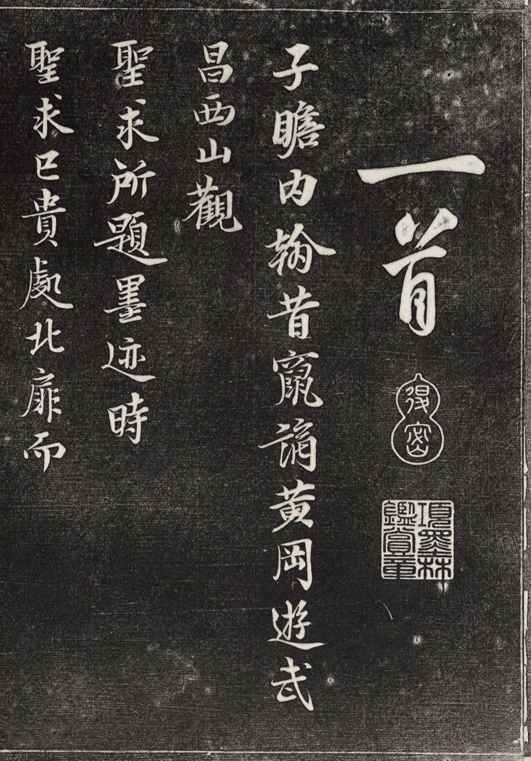 一首
得密
項墨林鑑賞章
子瞻内翰昔竄謫黃岡遊武
昌西山觀
聖求所題墨迹時
聖求已貴處北扉而